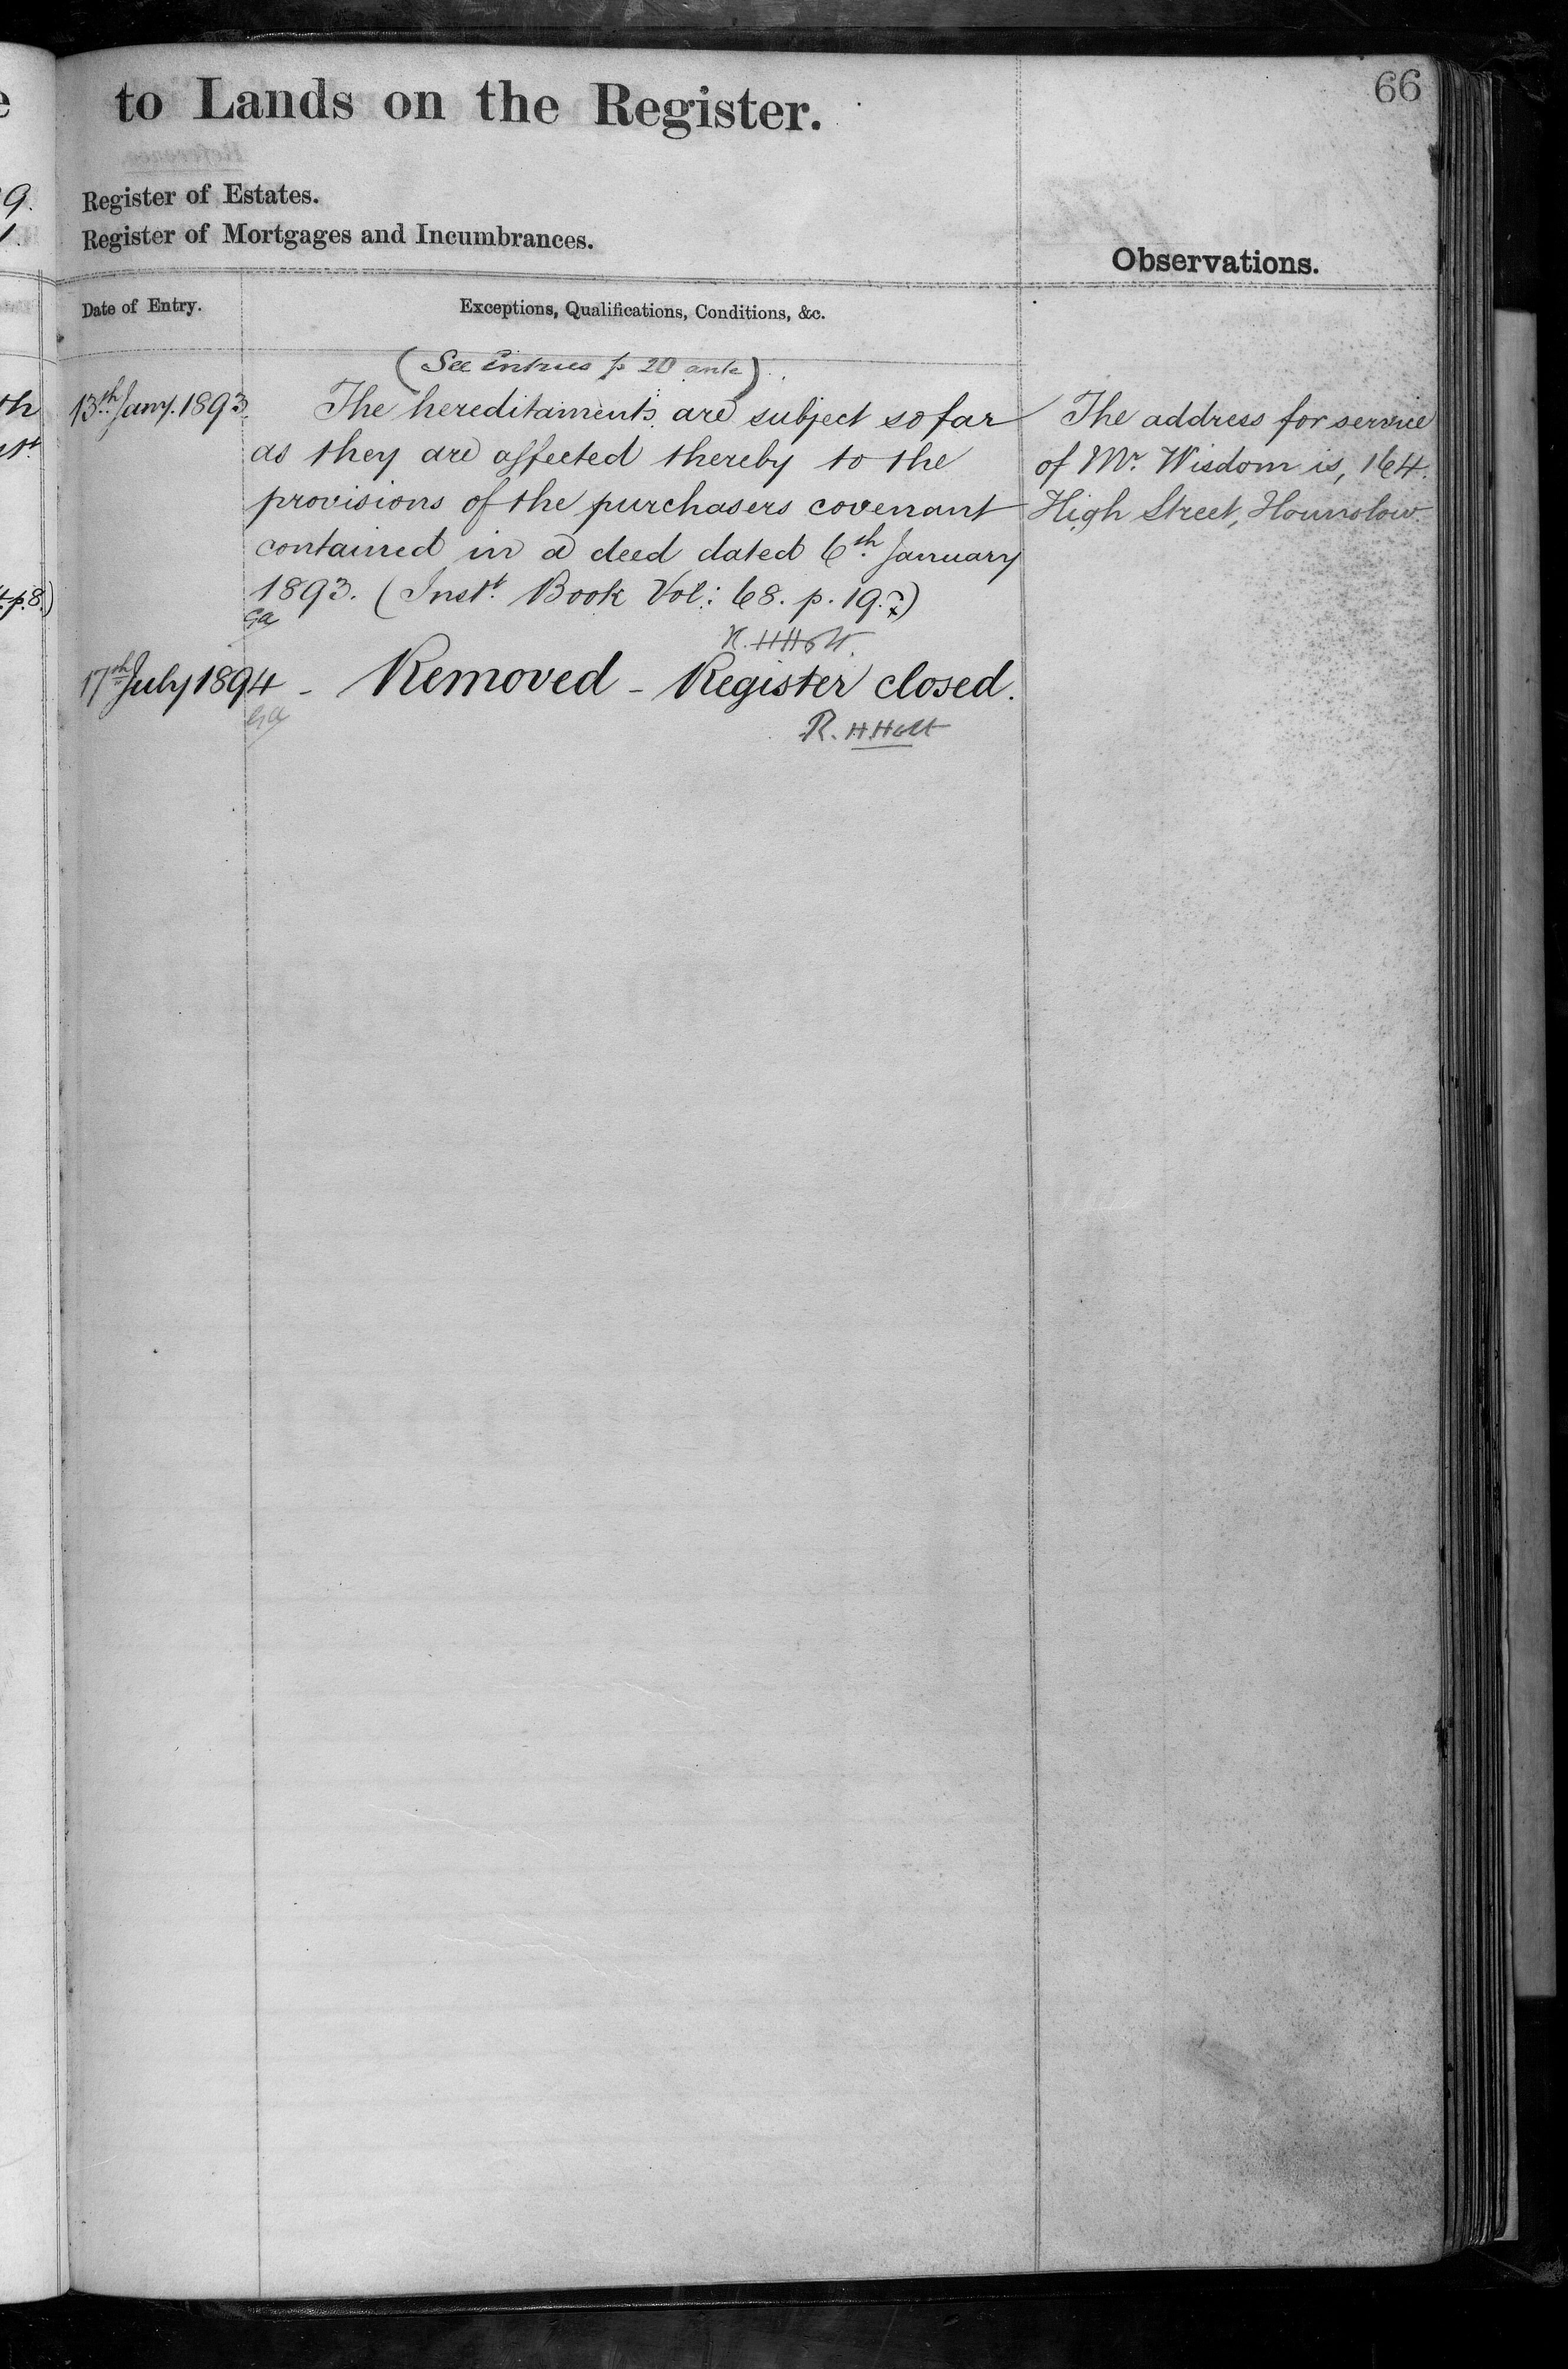 66
to Lands on the Register.
Register of Estates.
Register of Mortgages and Incumbrances.
Observations.
Date of Entry.
Exceptions, Qualifications, Conditions, &c.
(See Entries p 20 ante)
13th Jany. 1893. The hereditaments are subject so far
as they are affected thereby to the
provisions of the purchasers covenant
contained in a deed dated 6th January
1893. (Inst. Book Vol: 68. p. 19.)
R. H Holt.
17th July 1894 - Removed - Register closed.
R. H Holt
The address for service
of Mr. Wisdom is, 164.
High Street, Hounslow.
9.
1.
th
p. 8.)